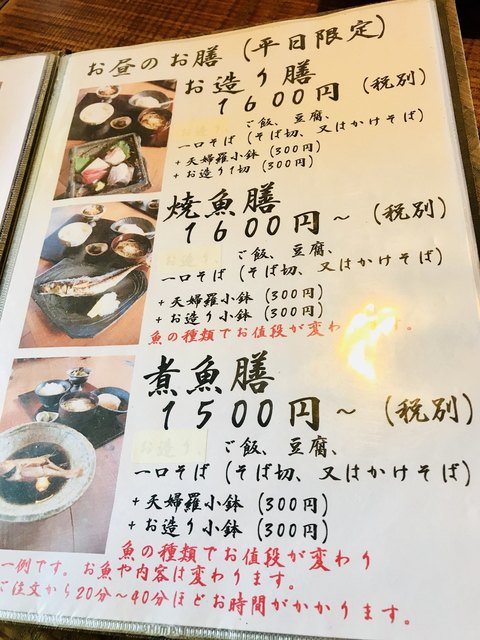 お昼のお膳（平日限定）
お造り膳
1600円（税別）
お造り、ご飯、豆腐、
一口そば（そば切、又はかけそば）
+天婦羅小鉢（300円）
+お造り1切（300円）
焼魚膳
1600円～（税別）
お造り、ご飯、豆腐、
一口そば（そば切、又はかけそば）
+天婦羅小鉢（300円）
+お造り小鉢（300円）
魚の種類でお値段が変わ　　す。
煮魚膳
1500円～（税別）
お造り、ご飯、豆腐、
一口そば（そば切、又はかけそば）
+天婦羅小鉢（300円）
+お造り小鉢（300円）
魚の種類でお値段が変わり
一例です。お魚や内容は変わります。
ご注文から20分～40分ほどお時間がかかります。